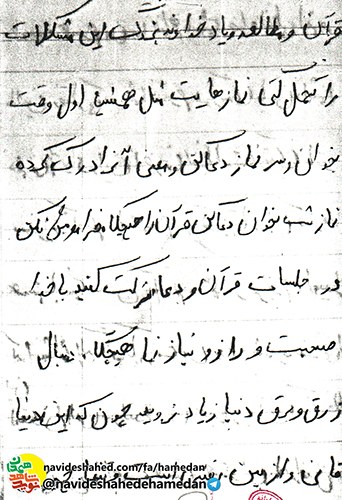 قرآن و مطالعه و یاد خداوند بزرگ این مشکلات
را تحمل کنی نمازهایت مثل همیشه اول وقت
بخوان و سر نماز دعا کن و معنی آنرا درک کرده
نماز شب بخوان دعا کن قرآن را هیچگاه فراموش نکن
در جلسات قرآن و دعا شرکت کنید با خدا
صحبت و راز و نیاز نما هیچگاه دنبال
زرق و برق دنیا زیاد نروید چون که این دنیا
فانی و از بین
navideshahed.com/fa/hamedan
@navideshahedehamedan